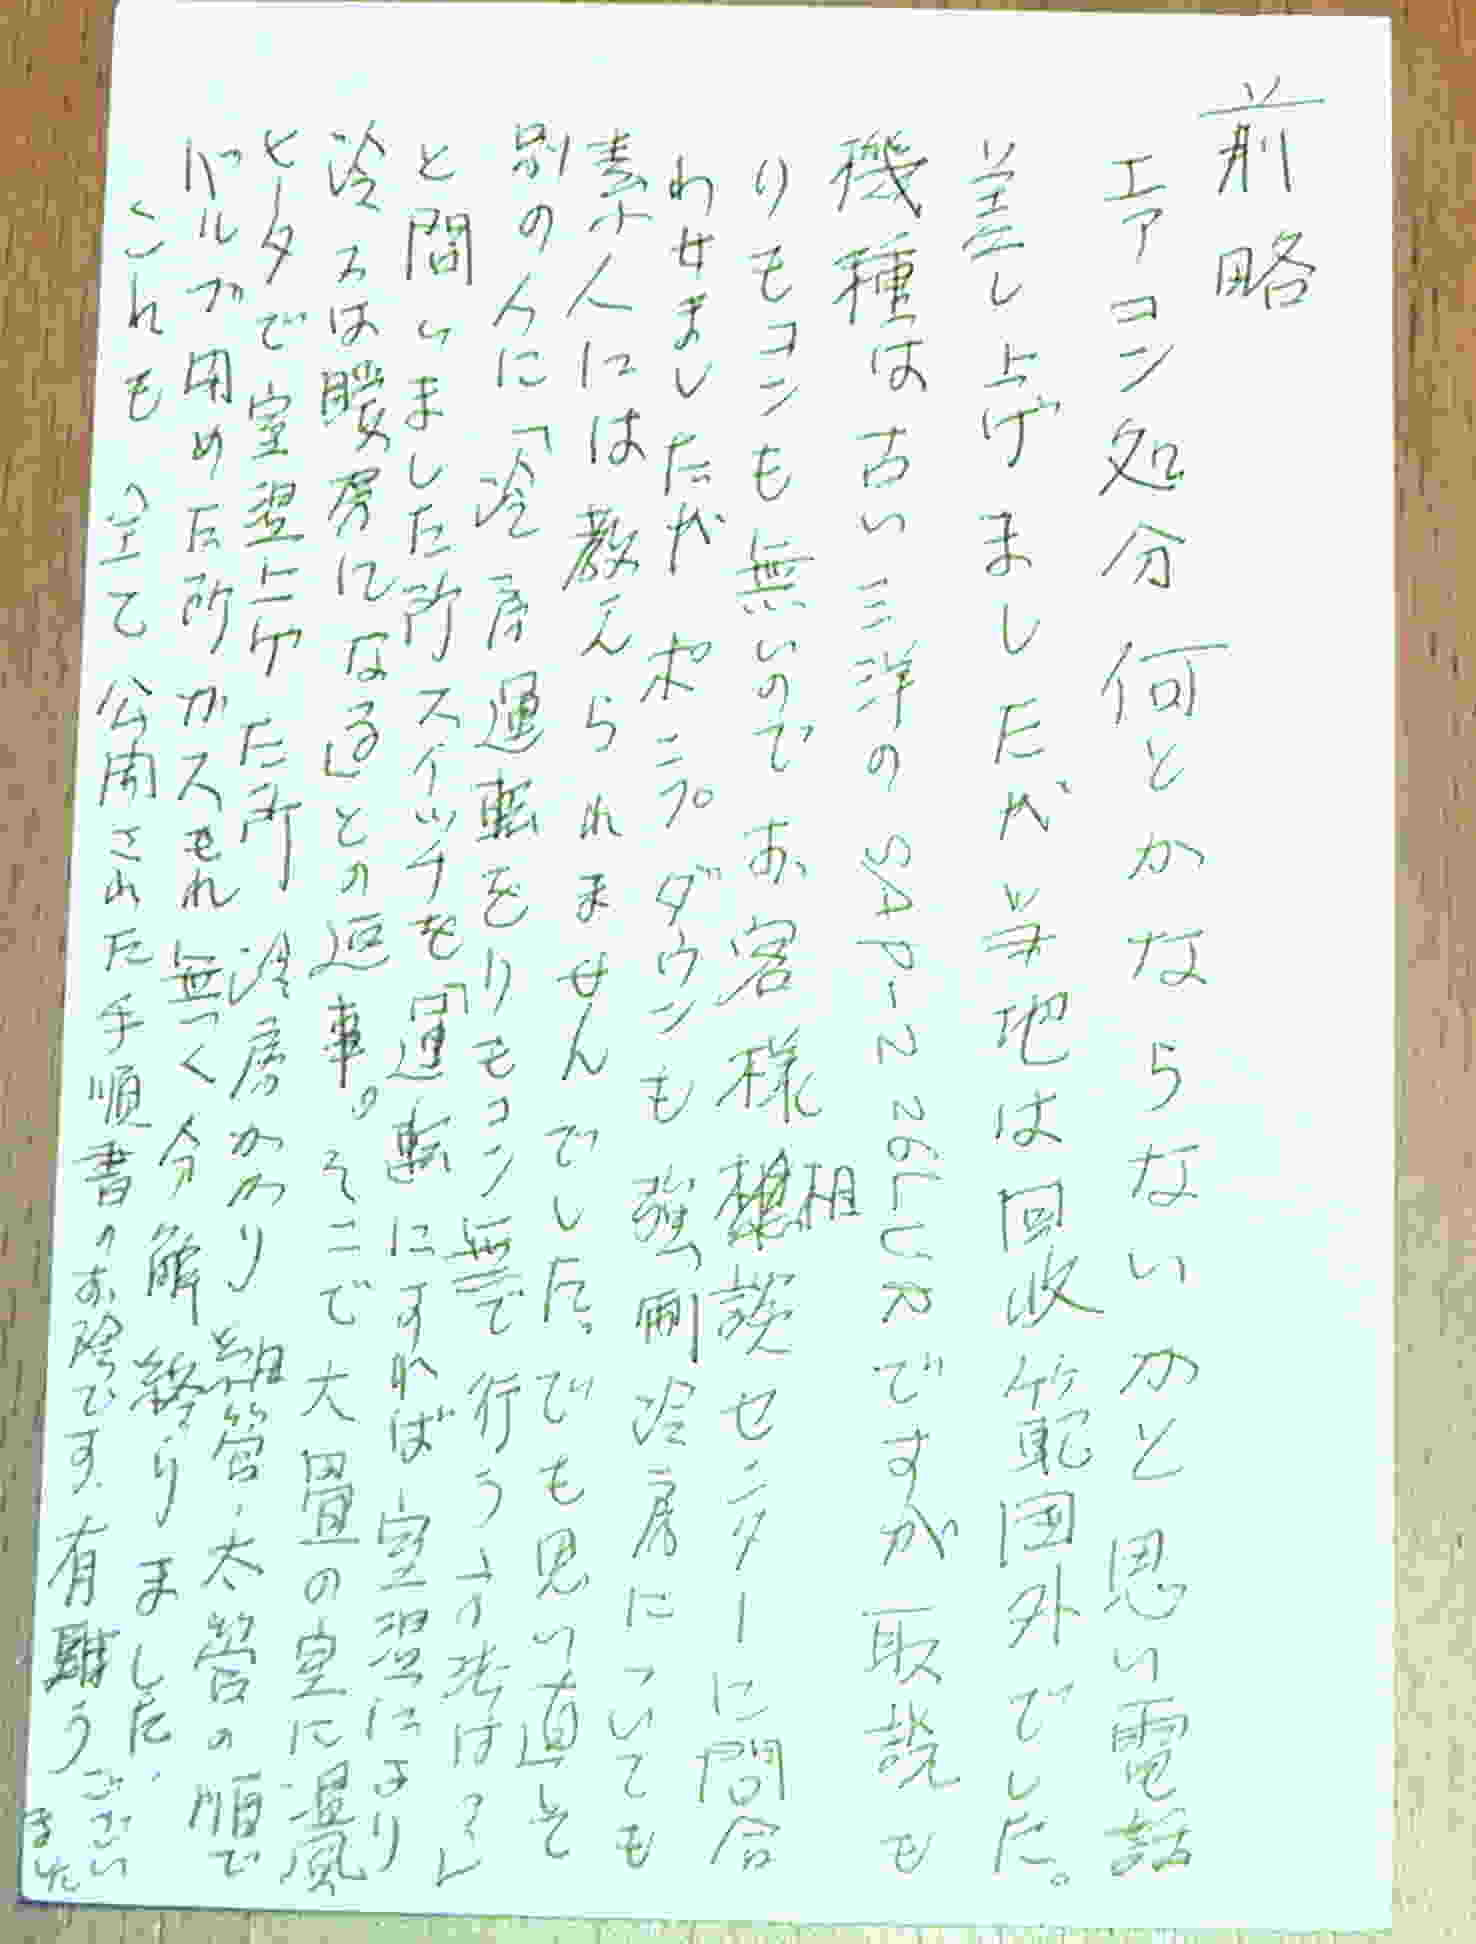 前略
エアコン処分何とかならないかと思い電話
差し上げましたが当地は回収範囲外でした。
機種は古い三洋のSAP-226LURですが取説も
りもコンも無いのでお客様相談センターに問合
わせましたがポンプダウンも強制冷房についても
素人には教えられませんでした。でも思い直して
別の人に「冷房運転をりもコン無で行う方法は?」
と問いました所スイッチを「運転にすれば室温により
冷又は暖房になる」との返事。そこで大畳の室に温風
ヒータで室温上げた所冷房かかり細管、太管の順で
バルブ用めた所ガスもれ無っく分解終りました、
これも全て公開された手順書のお陰です。有難うございました